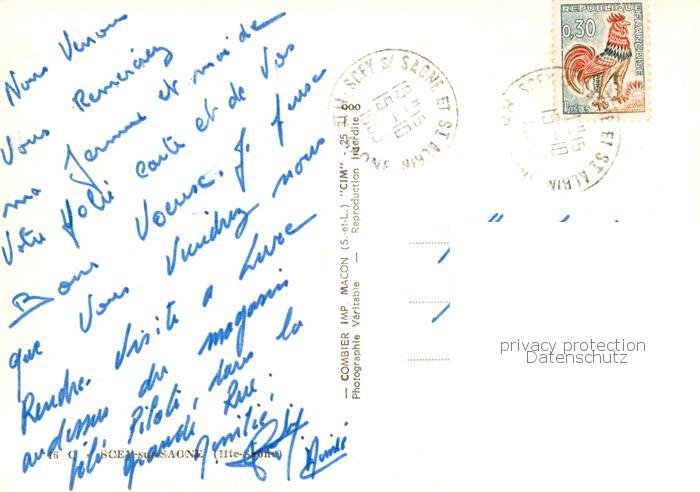 Nous Venons
Vous Remercier
ma femme et moi de
Votre Jolie carte et de Vos
Bons Voeux. J'
que Vous Viendrez nous
Rendre Visite a Lure
au dessus du magasin
félé Piloti, dans la
grande Rue.
Amitié,
16 C - SCEY-sur-SAONE (Hte-Saône)
— COMBIER IMP. MACON (S.-et-L.) "CIM" -
Photographie Véritable — Reproduction Interdite
REPUBLIQUE FRANÇAISE
0,30
Postes
SCEY S/ SAONE ET ST ALBIN
18H15
15-10
privacy protection
Datenschutz